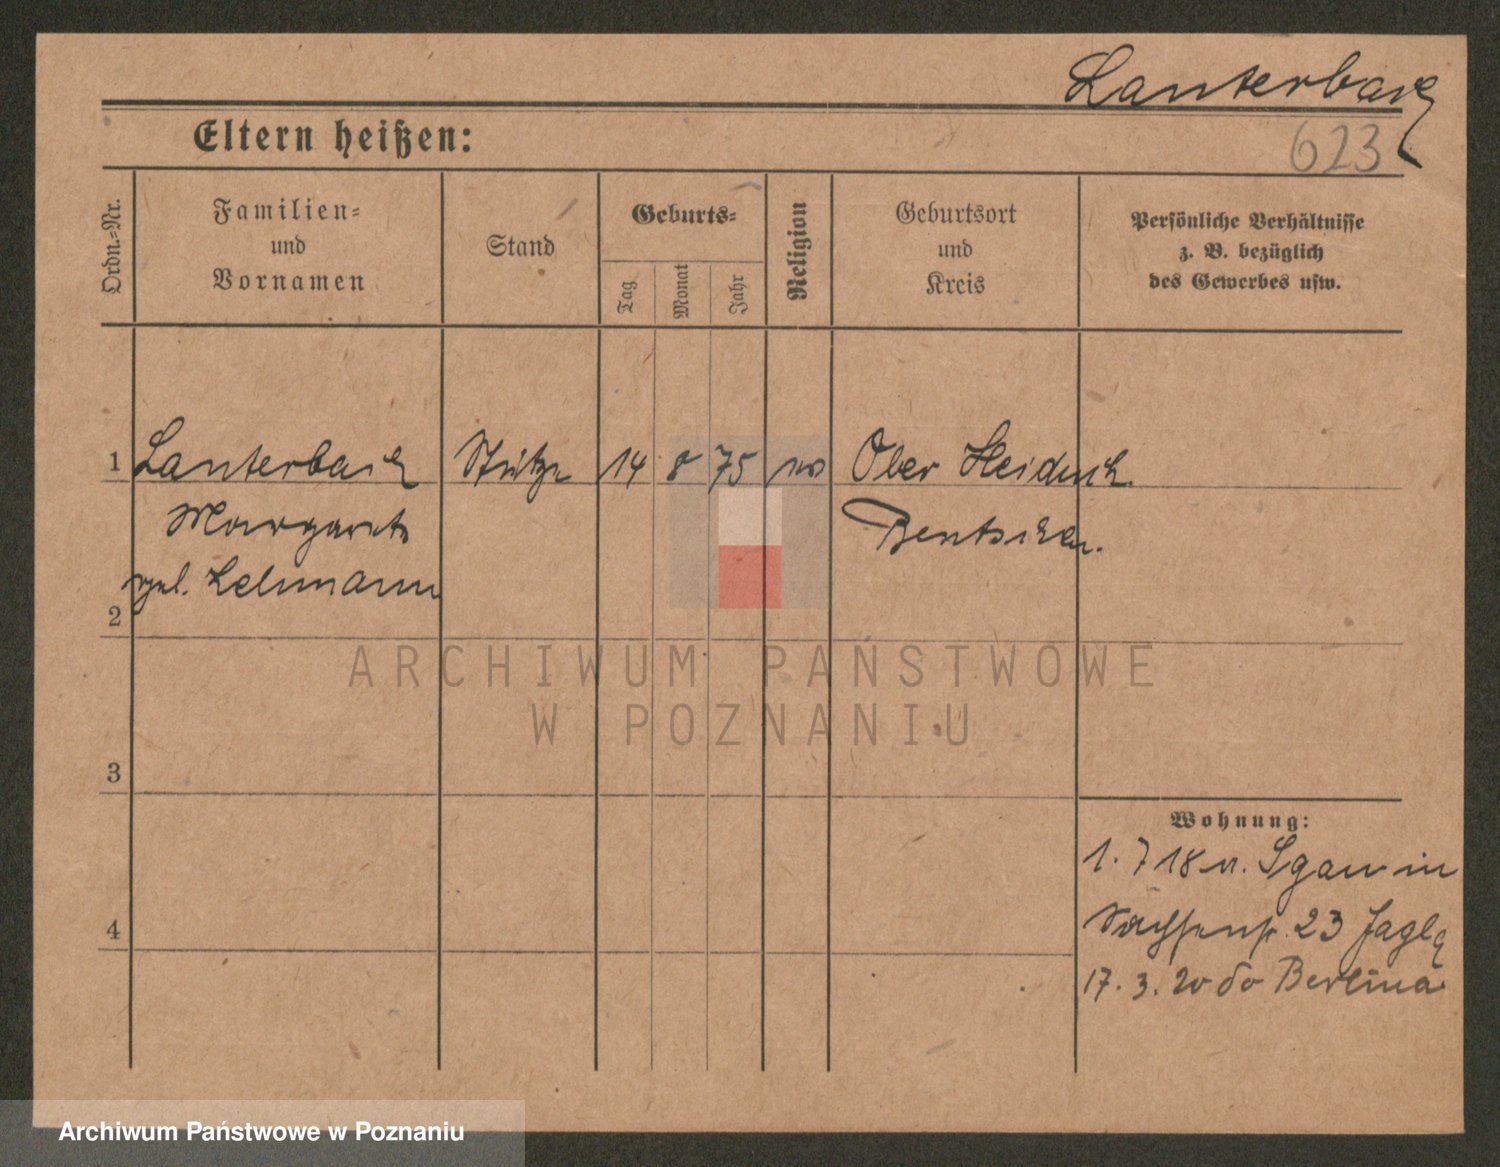 Lauterbach
623
Eltern heißen:
Ordn.-Nr.
Familien-
und
Vornamen
Stand
Geburts-
Tag
Monat
Jahr
Religion
Geburtsort
und
Kreis
Persönliche Verhältnisse
z. B. bezüglich
des Gewerbes usw.
1 Lauterbach Stütze 14 8 75 Ober Heiduk
Margarete Bentschen.
Lehmann
2
ARCHIWUM PAŃSTWOWE
W POZNANIU
3
Wohnung:
1. 7 18 in
23
4
17. 3. 20 do Berlina
Archiwum Państwowe w Poznaniu